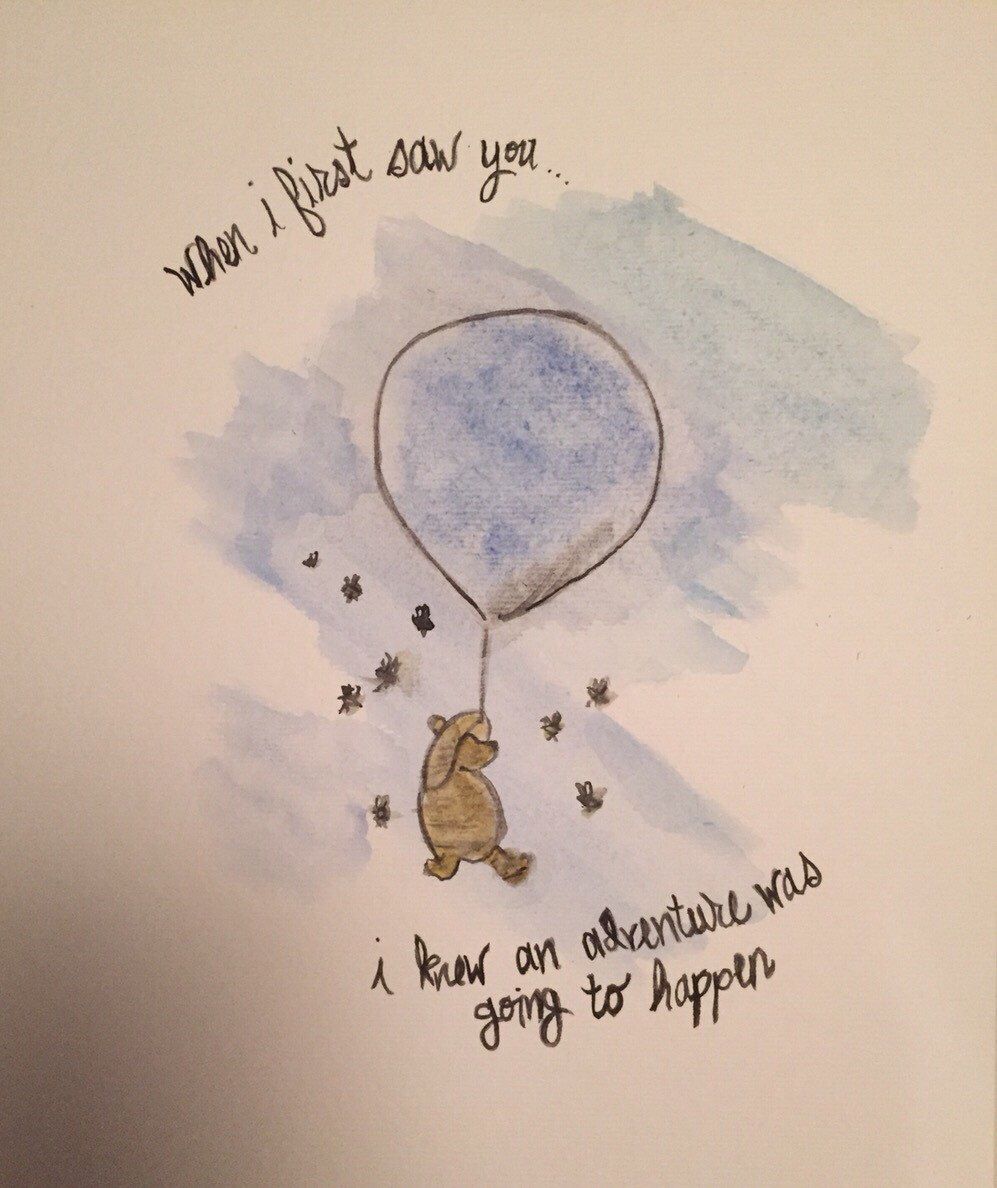 when i first saw you...
i knew an adventure was
going to happen